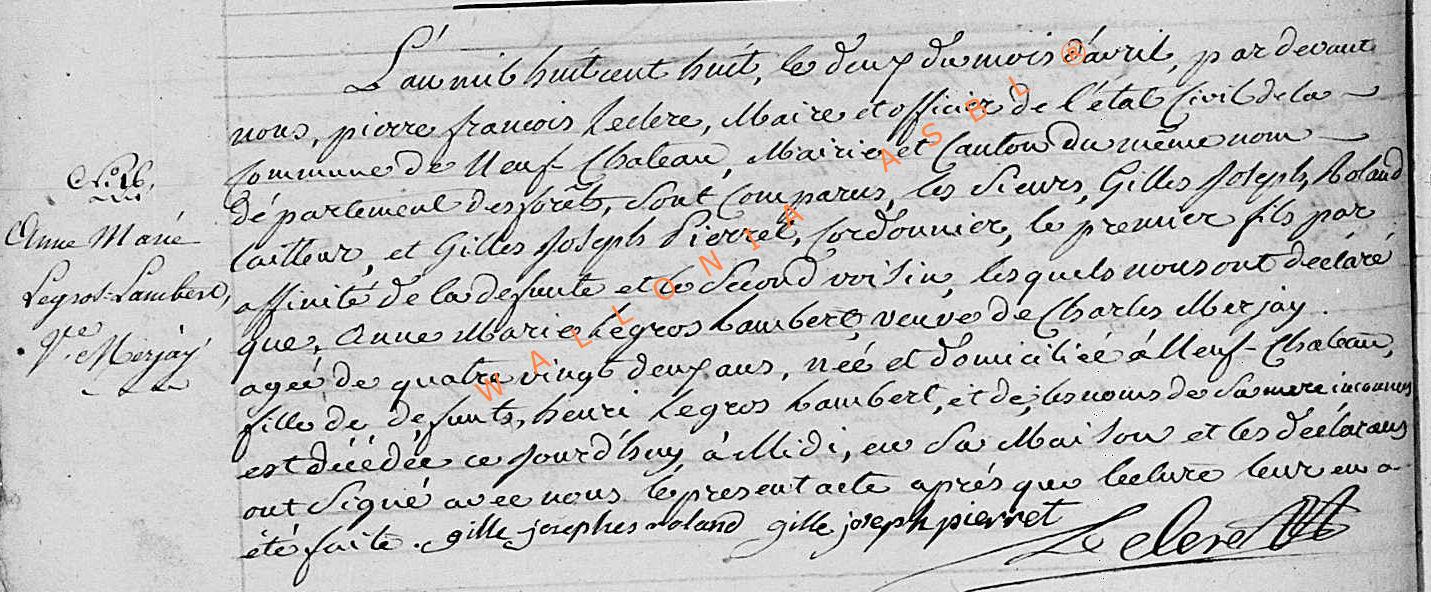 L'an mil huit cent huit, le deux du mois d'avril, par devant
nous, pierre francois Leclere, Maire et officier de l'état Civil de la
Commune de Neuf-Chateau, Mairie et Canton du même nom
département des forêts, sont Comparus, les Sieurs, Gilles Joseph, Roland
tailleur, et Gilles Joseph Pierret, Cordonnier, le premier fils par
affinité de la defunte et le Second voisin, lesquels nous ont déclaré
que, Anne Marie Legros Lambert, veuve de Charles Merjay.
agée de quatre vingt deux ans, née et domiciliée à Neuf-Chateau,
fille de défunts, henri Legros Lambert, et de, les noms de Sa mere inconnus
est décédée ce Jourd'huy, à Midi, en Sa Maison et les déclarans
ont Signé avec nous le present acte aprés que lecture leur en a
été faite. gille josephes roland gille joseph pierret
Leclere
N.° 16.
Anne Marie
Legros-Lambert,
Ve. Merjay
WALLONIA ASBL @